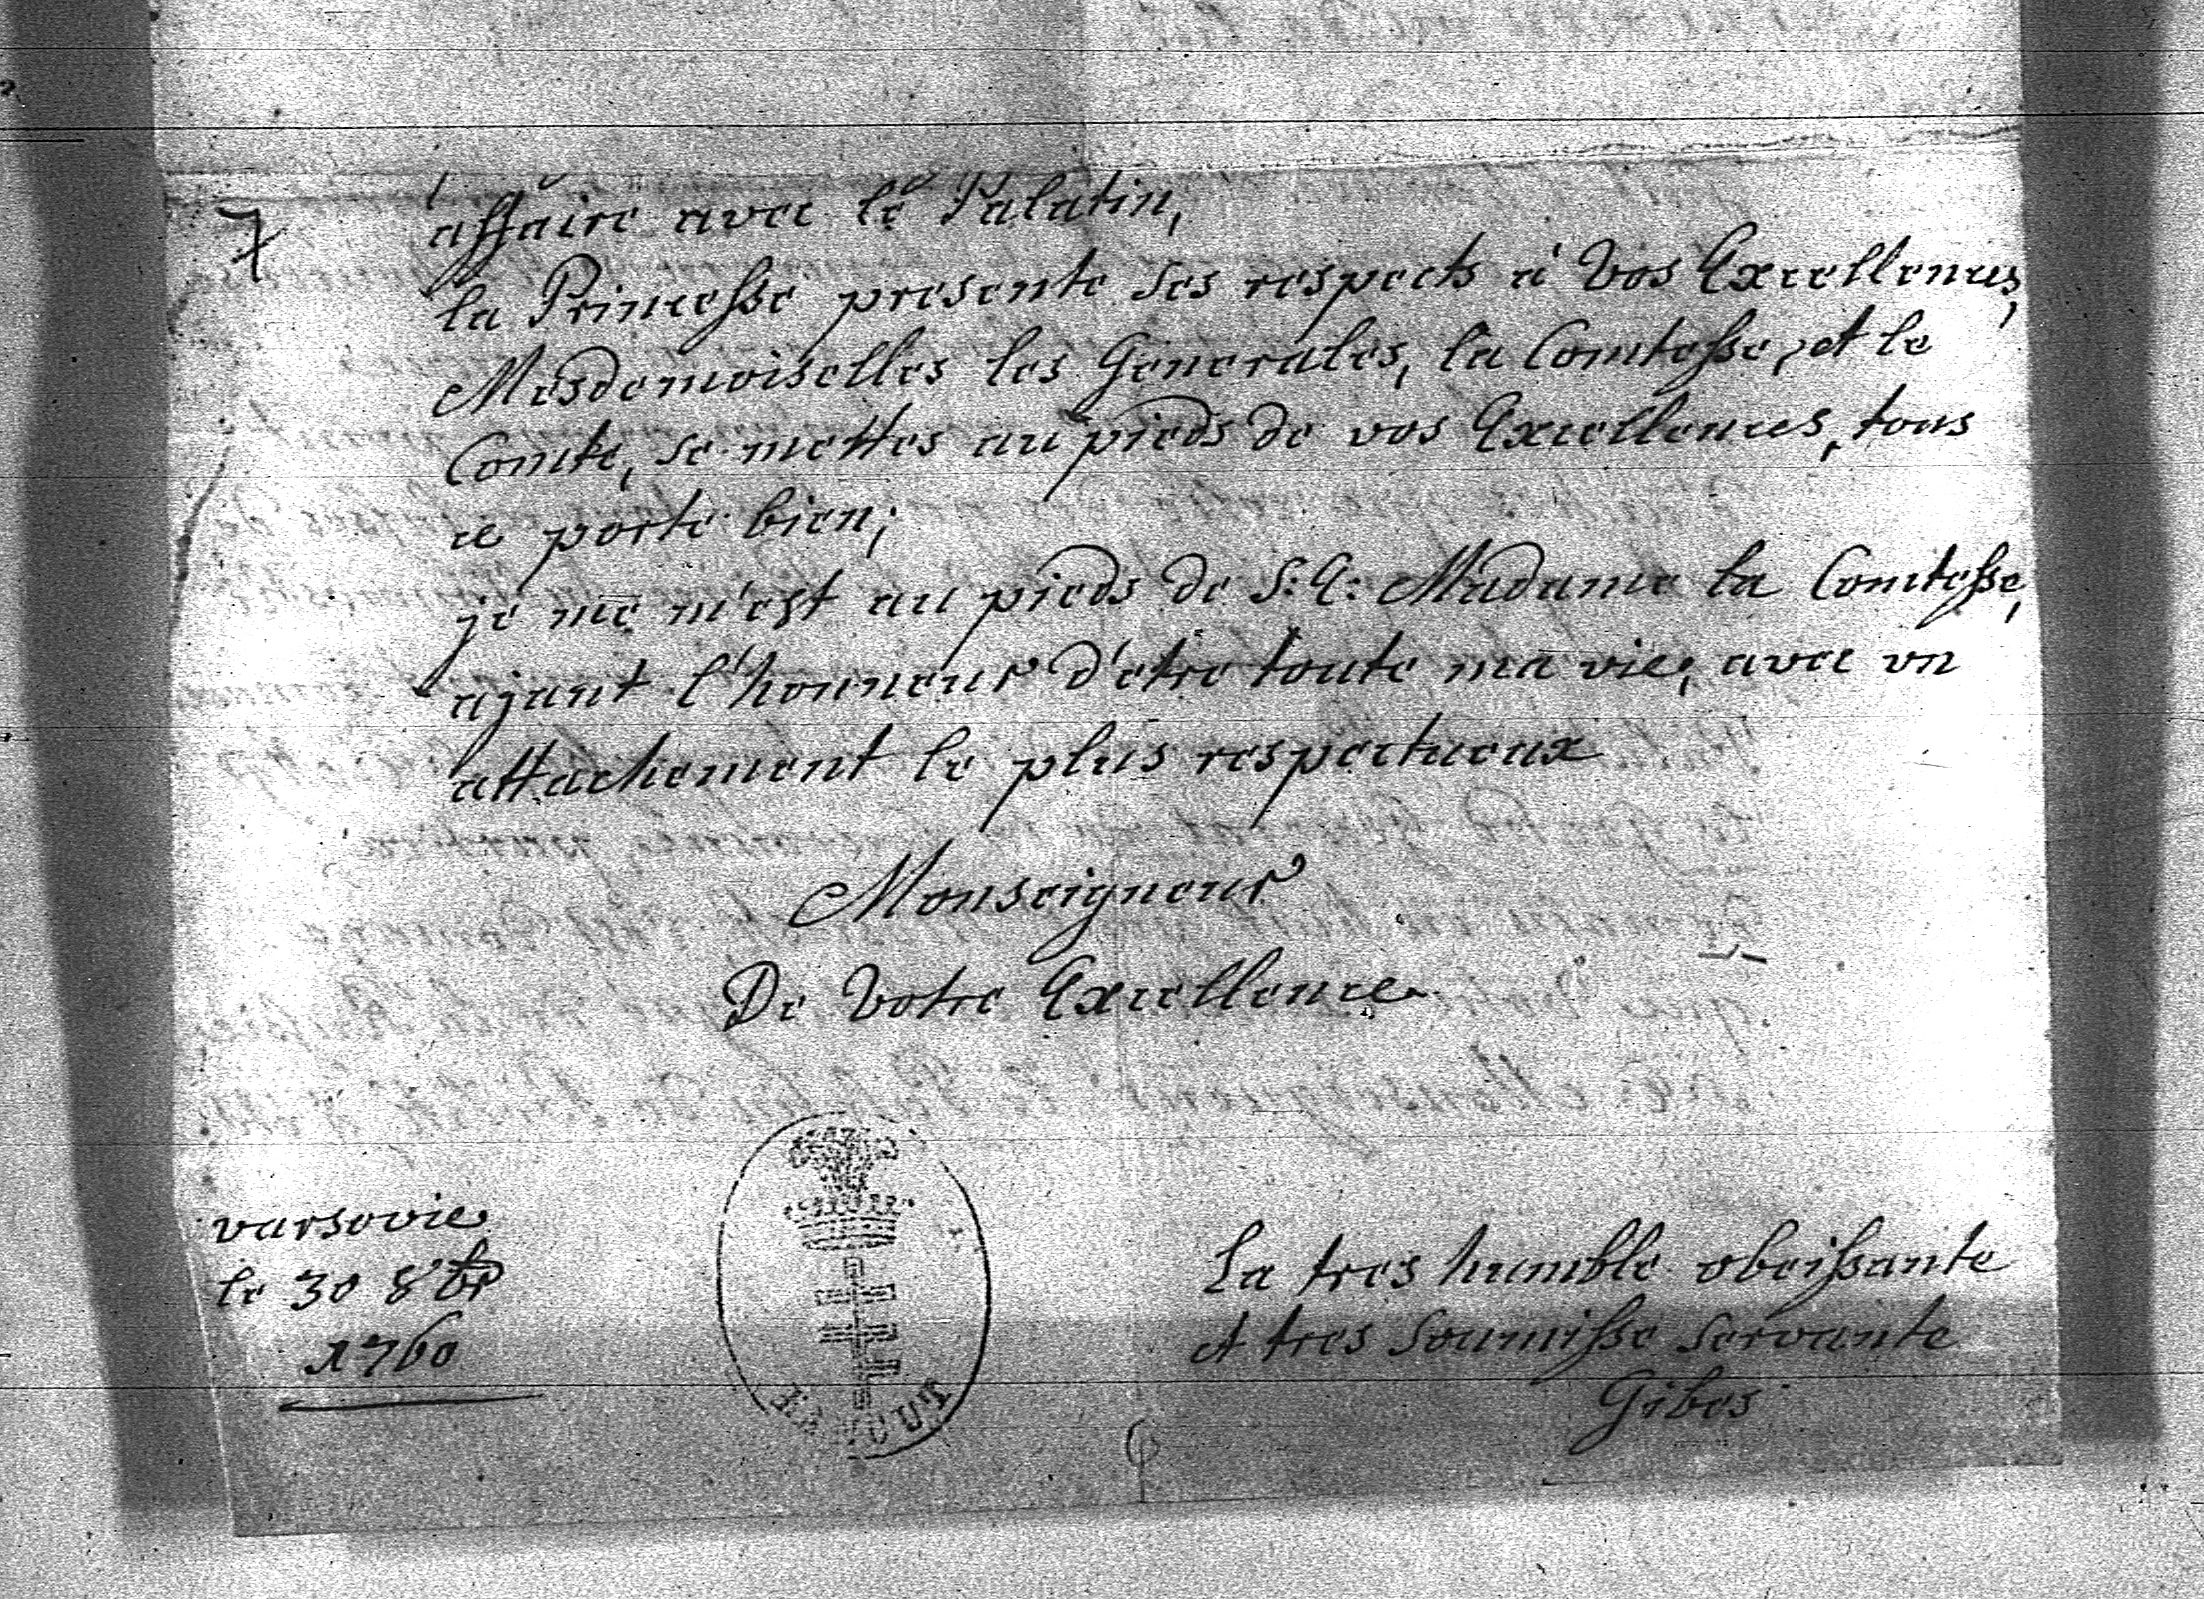 affaire avec le Palatin,
la Princesse presente ses respects à Vos Excellences,
Mesdemoiselles les Generales, la Comtesse, et le
Comte, se mettes au pieds de vos Excellences, tous
ce porte bien;
je me m'est au pieds de S: E: Madame la Comtesse,
ajant l'honneur d'etre toute ma vie, avec vn
attachement le plus respectueux
Monseigneur
De Votre Excellence
varsovie
le 30 8btr
1760
La tres humble obeissante
et tres soumisse servante
Gibes